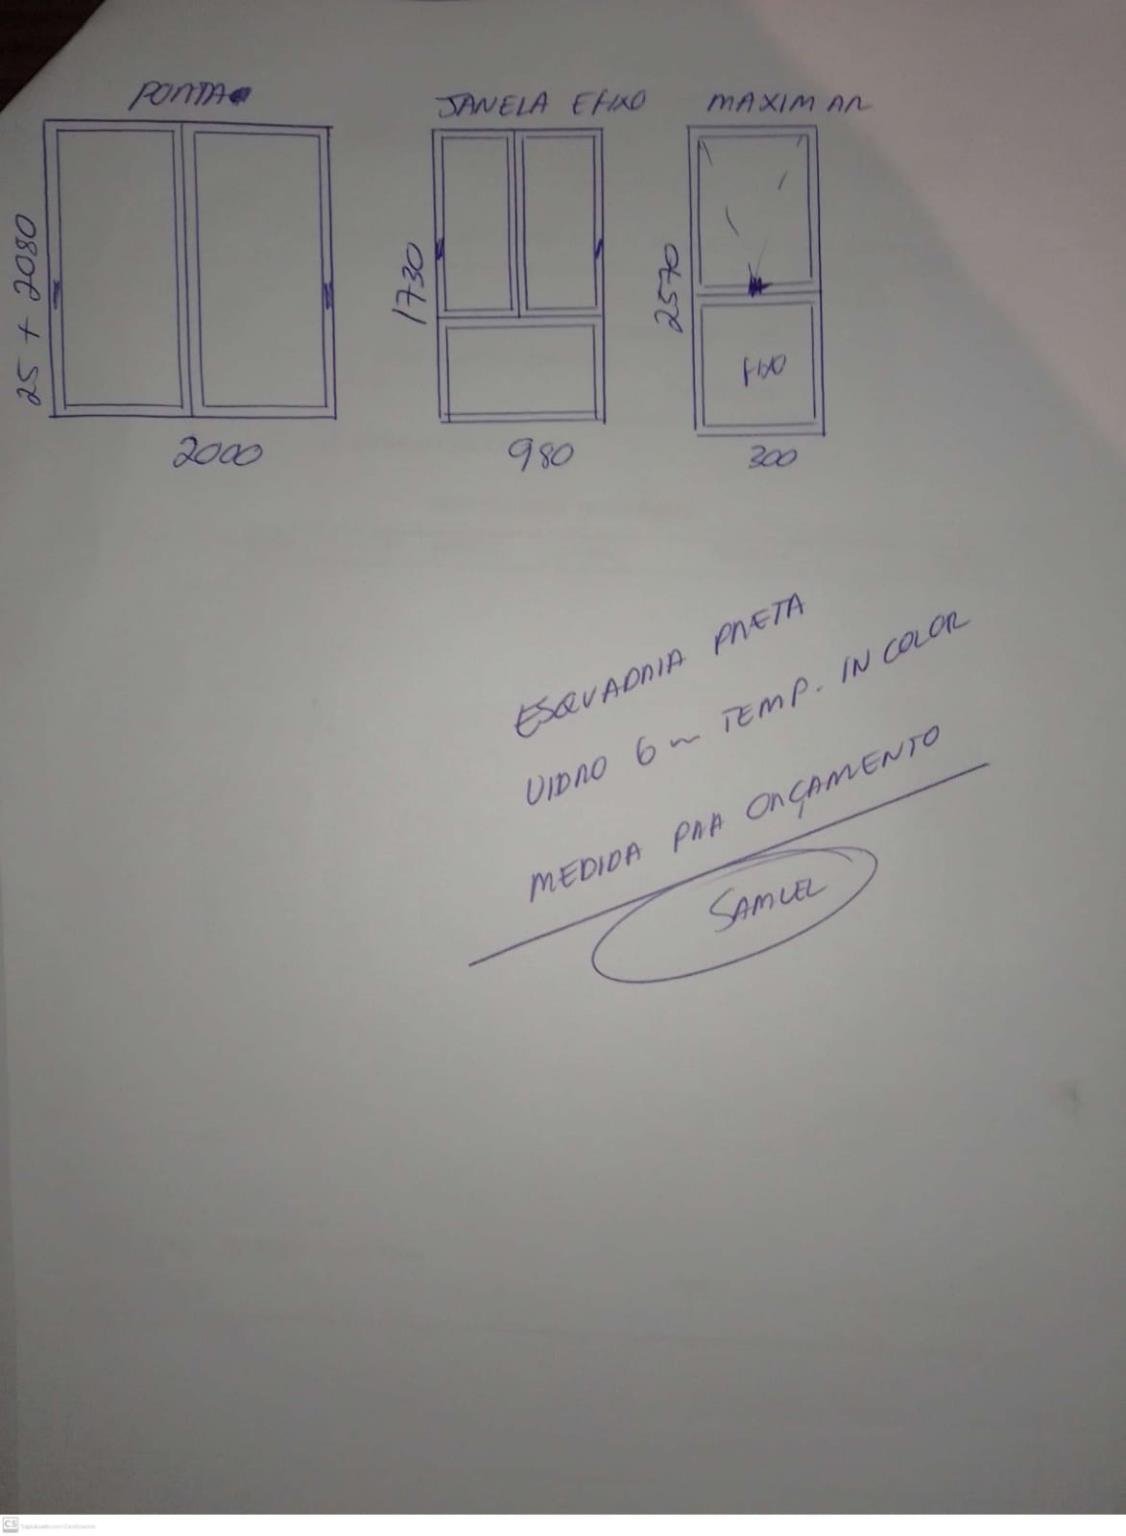 PORTA
JANELA E FIXO
MAXIM AR
25 + 2080
1730
2570
FIXO
2000
980
300
ESQUADRIA PRETA
VIDRO 6 m TEMP. IN COLOR
MEDIDA PRA ORÇAMENTO
SAMUEL
CS